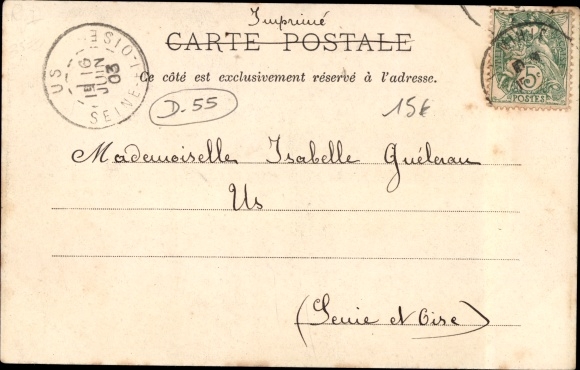 Imprimé
CARTE POSTALE
Ce côté est exclusivement réservé à l'adresse.
US
SEINE-ET-OISE
1E
16
JUIN
03
D.55
15€
5c
POSTES
Mademoiselle Isabelle Guéleran
Us
(Seine et Oise)